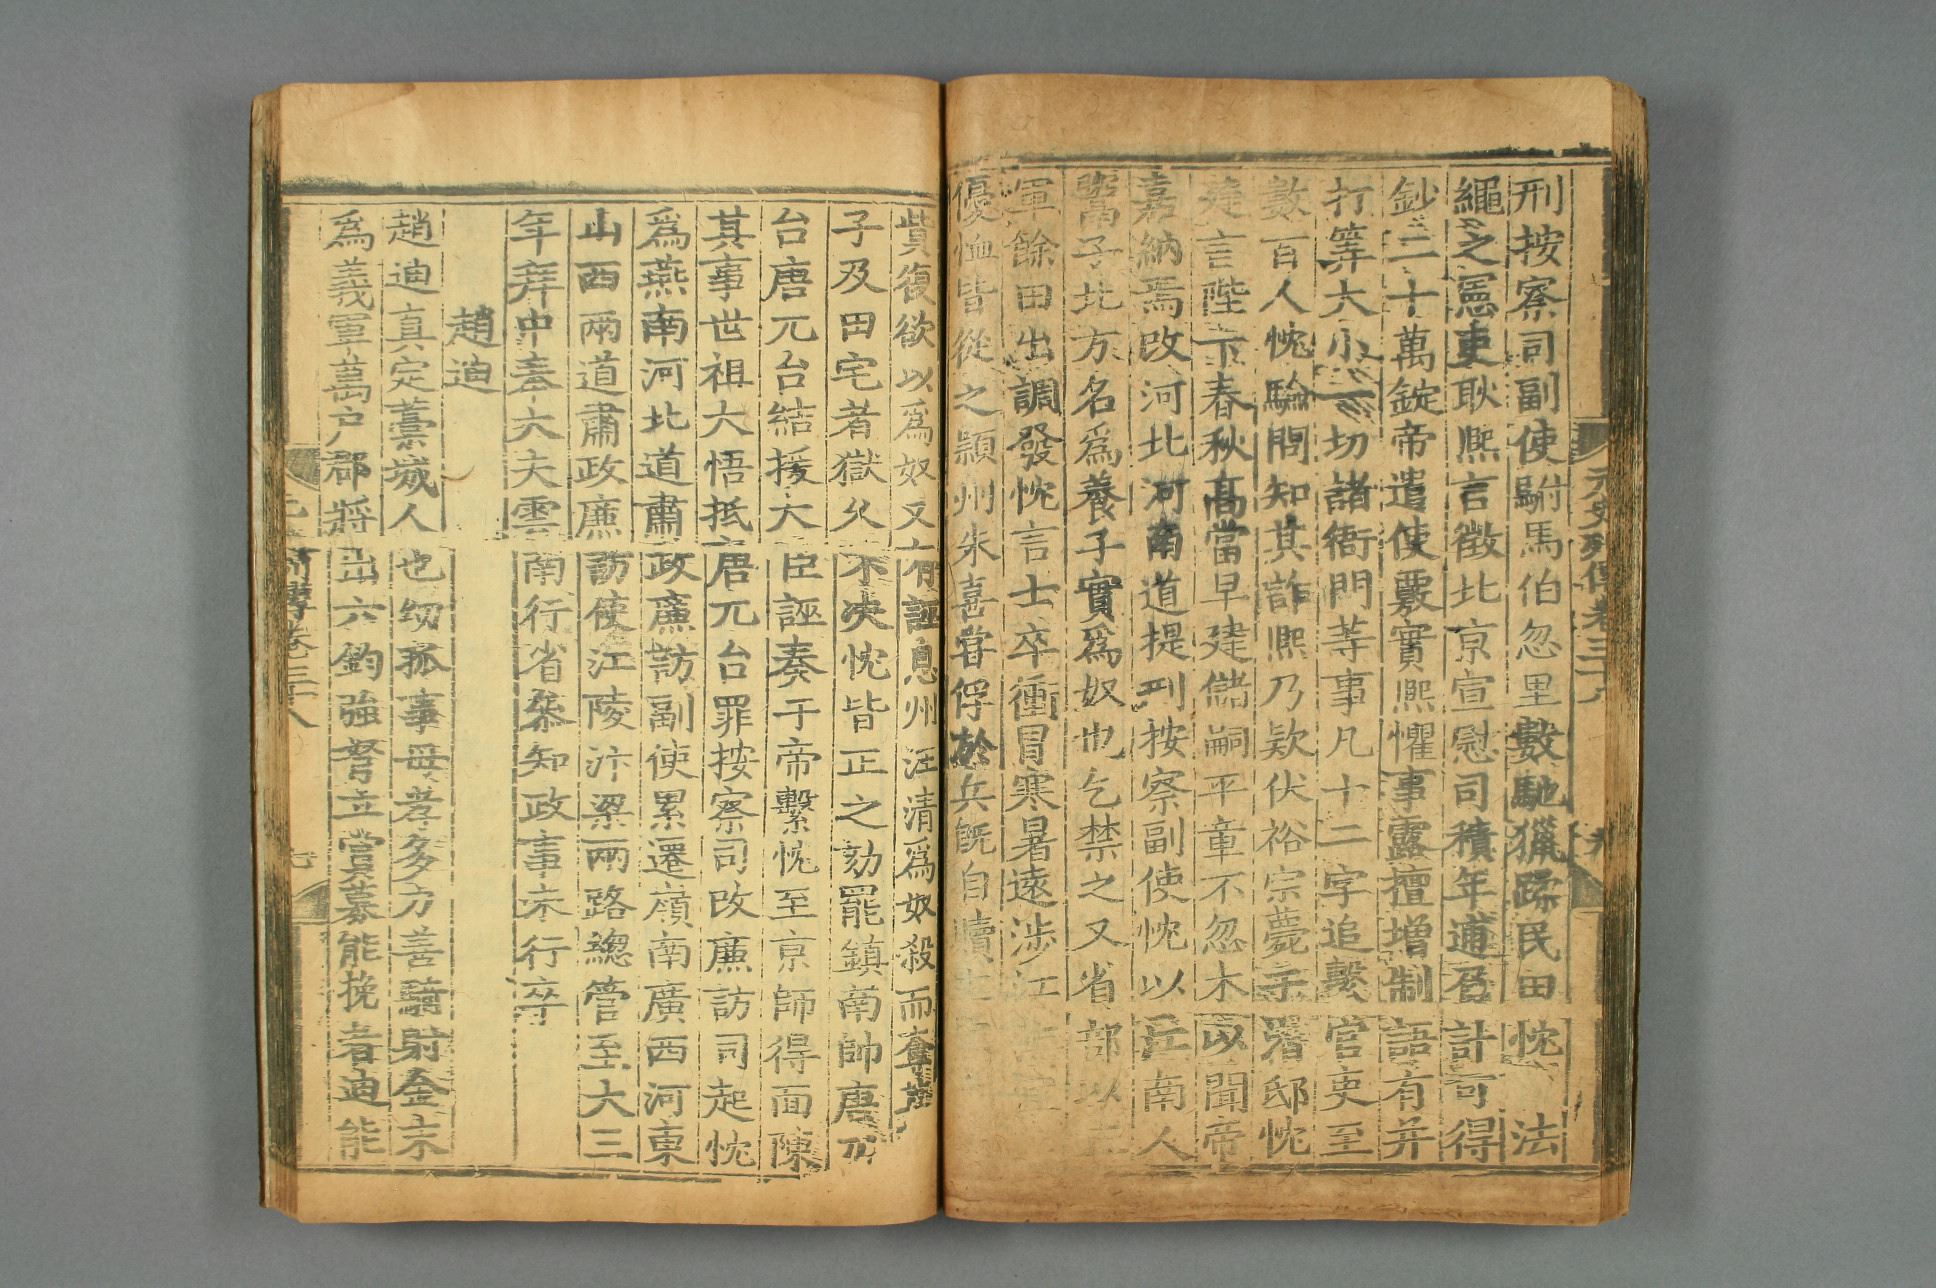 刑按察司副使駙馬伯忽里數馳獵蹂民田忱法
繩之憲吏耿熙言徵北京宣慰司積年逋及計可得
鈔二十萬錠帝遣使覈實熙懼事露擅增制語有并
打算大小一切諸衙門等事凡十二字追繫官吏至
數百人忱驗問知其詐熙乃款伏裕宗薨于潛邸忱
建言陛下春秋高當早建儲嗣平章不忽木以聞帝
嘉納焉改河北河南道提刑按察副使忱以江南人
鬻子北方名爲養子實爲奴也乞禁之又省部以
軍餘田出調發忱言士卒衝冒寒暑遠涉江
優恤皆從之潁州朱喜嘗俘於兵旣自贖主
元史列傳卷三十八
九
貲復欲以爲奴又有誣息州汪清爲奴殺而奪其
子及田宅者獄久不决忱皆正之劾罷鎭南帥唐兀
台唐兀台結援大臣誣奏于帝繫忱至京師得面陳
其事世祖大悟抵唐兀台罪按察司改廉訪司起忱
爲燕南河北道肅政廉訪副使累遷嶺南廣西河東
山西兩道肅政廉訪使江陵汴梁兩路總管至大三
年拜中奉大夫雲南行省叅知政事未行卒
趙迪
趙迪眞定藁城人也幼孤事母孝多力善騎射金末
爲義軍萬戶郡將出六鈞強弩立賞募能挽者迪能